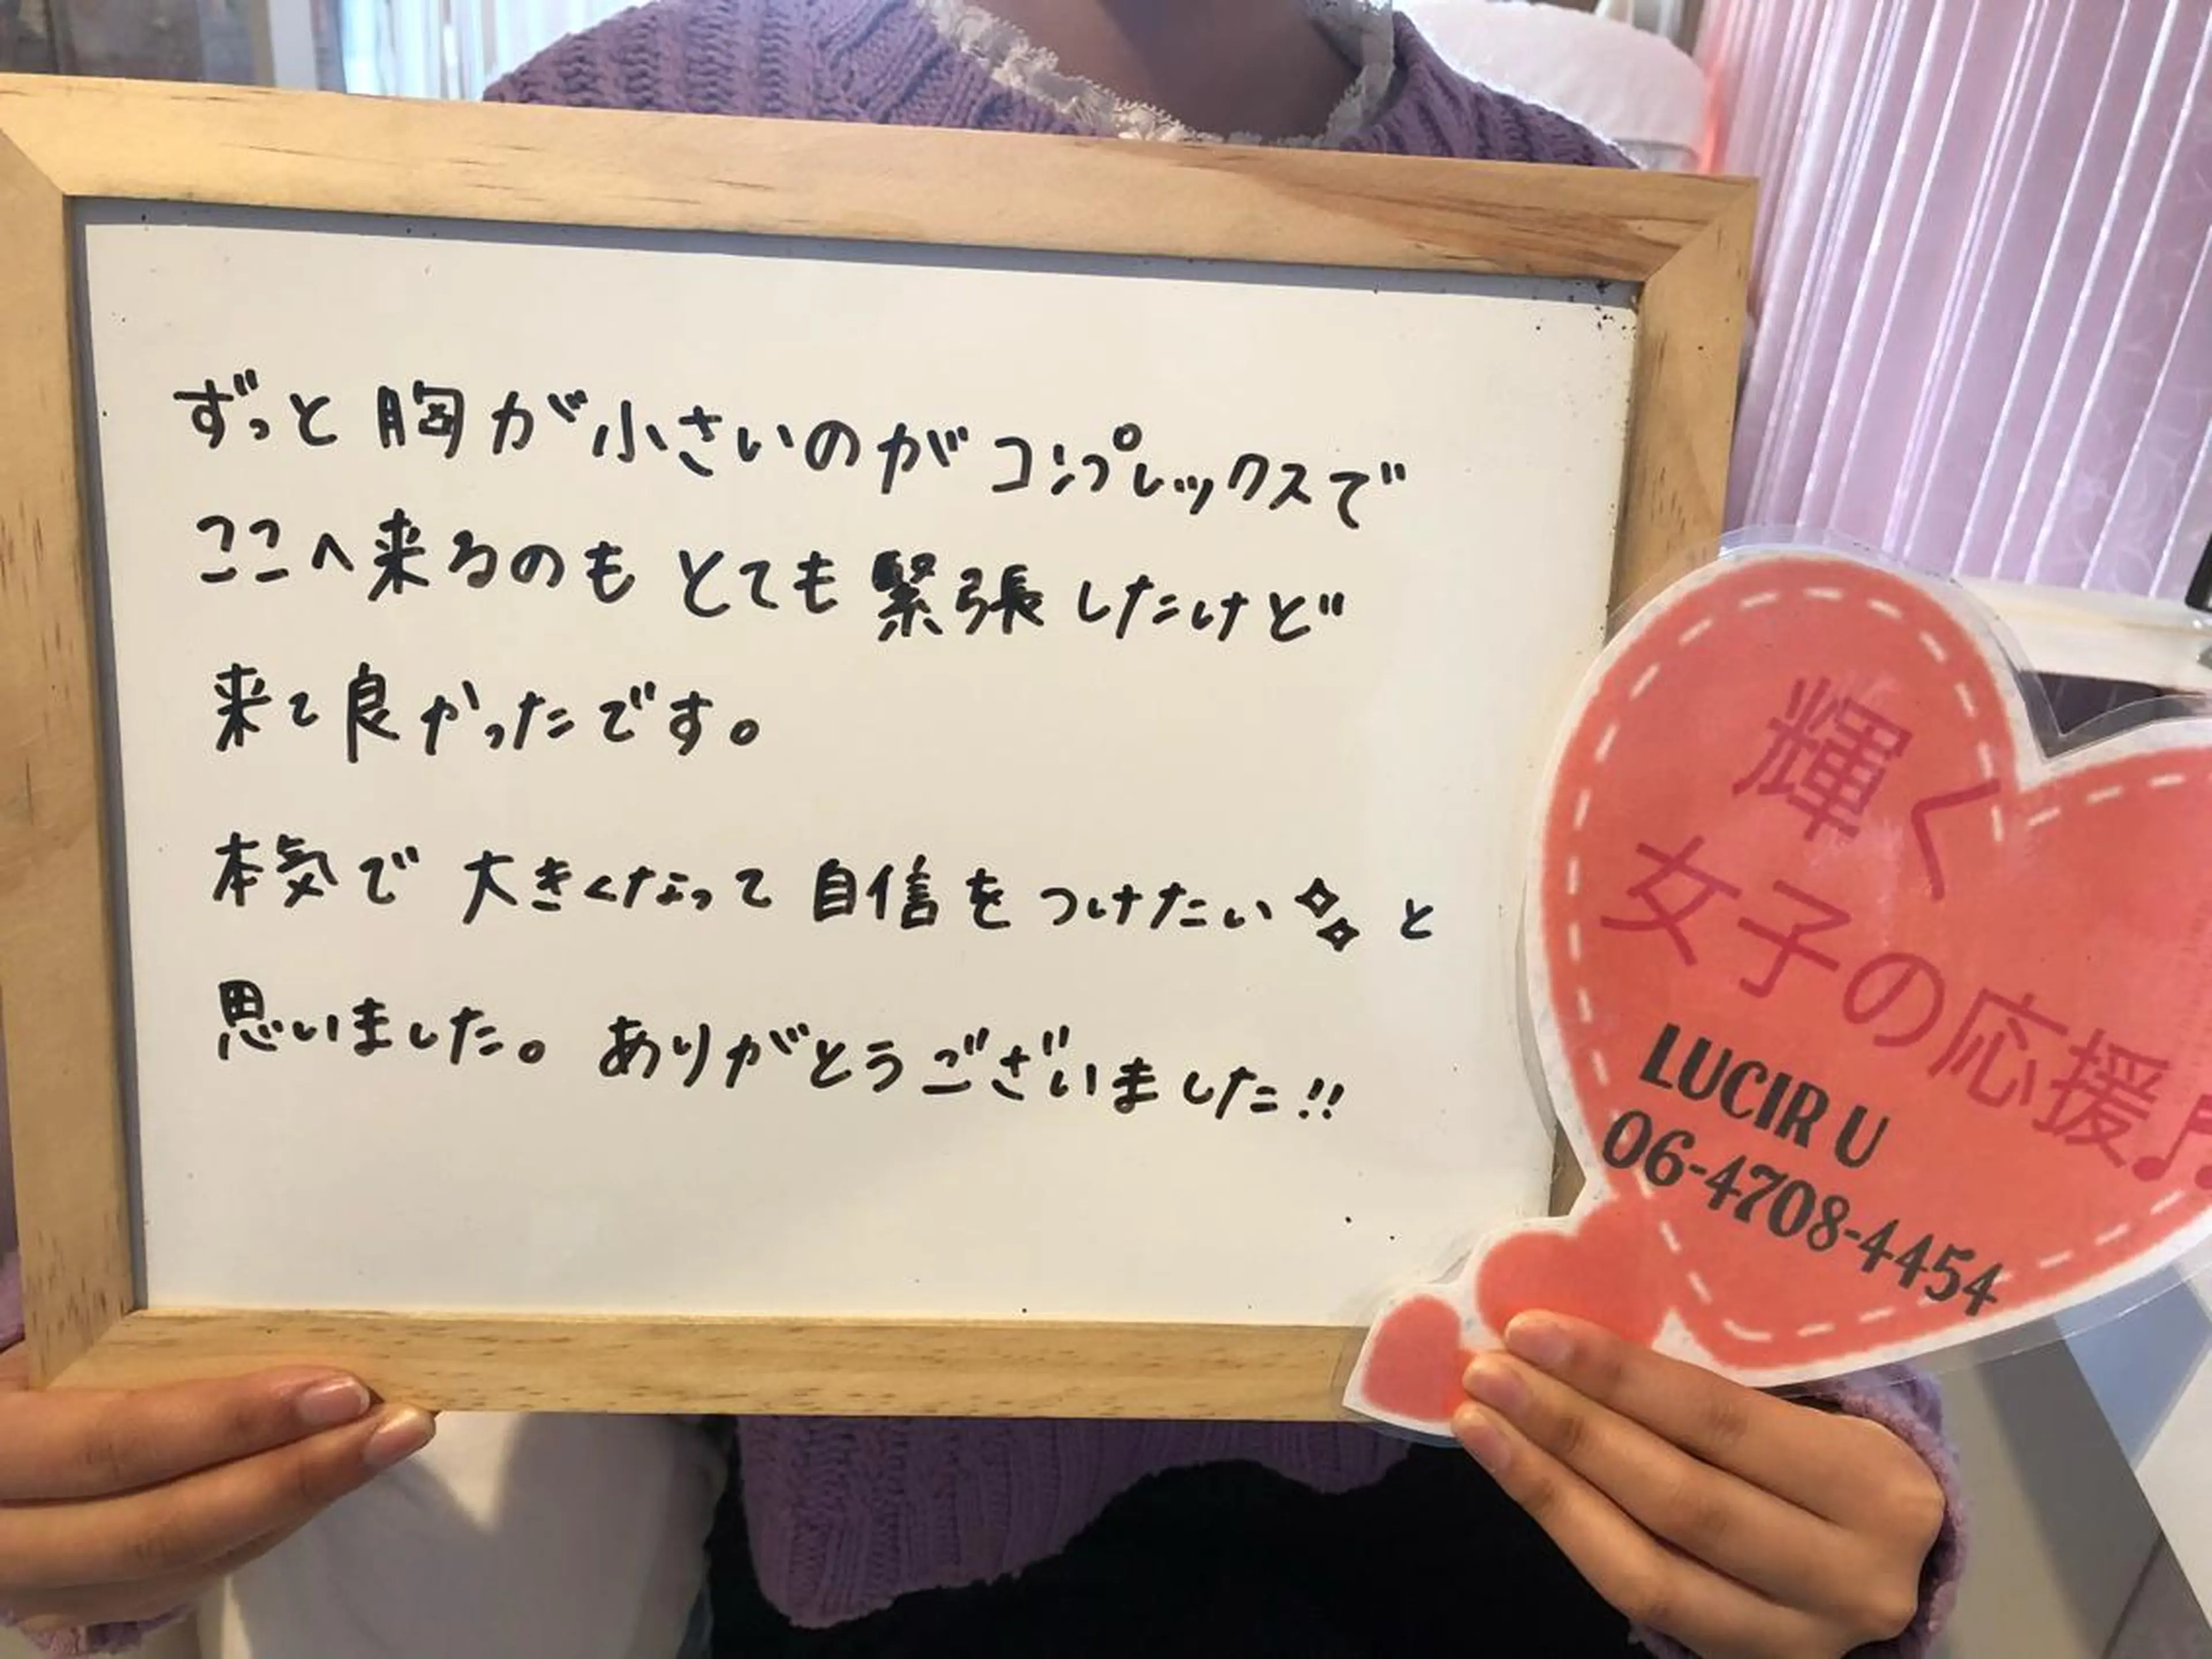 ずっと胸が小さいのがコンプレックスで
ここへ来るのもとても緊張したけど
来て良かったです。
本気で大きくなって自信をつけたい✧✧と
思いました。ありがとうございました!!
輝く
女子の応援♫
LUCIR U
06-4708-4454